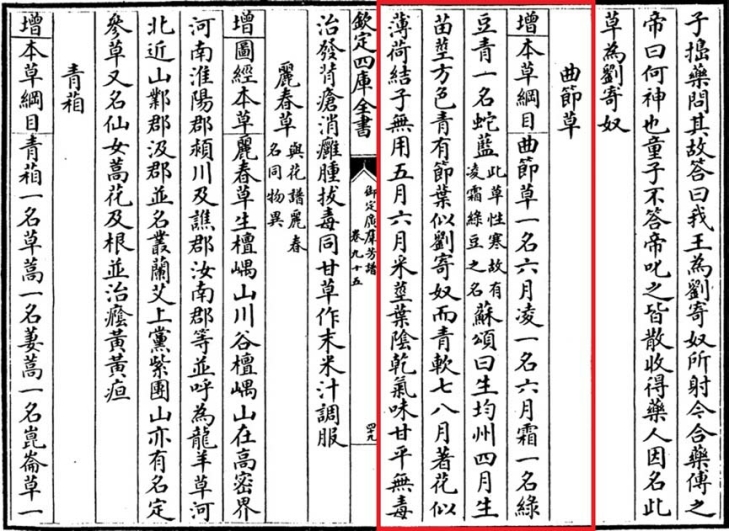 子搗藥問其故答曰我王為劉寄奴所射令合藥傅之
帝曰何神也童子不答帝叱之皆散收得藥人因名此
草為劉寄奴
曲節草
增本草綱目曲節草一名六月凌一名六月霜一名綠
豆青一名蛇藍此草性寒故有凌霜綠豆之名蘇頌曰生均州四月生
苗莖方色青有節葉似劉寄奴而青軟七八月著花似
薄荷結子無用五月六月采莖葉陰乾氣味甘平無毒
欽定四庫全書
御定廣羣芳譜
卷九十五
四九
治發背瘡消癰腫拔毒同甘草作末米汁調服
麗春草與花譜麗春名同物異
增圖經本草麗春草生檀嵎山川谷檀嵎山在高密界
河南淮陽郡頴川及譙郡汝南郡等並呼為龍羊草河
北近山鄴郡汲郡並名叢蘭艾上黨紫團山亦有名定
參草又名仙女蒿花及根並治癊黃黃疸
青葙
增本草綱目青葙一名草蒿一名萋蒿一名崑崙草一